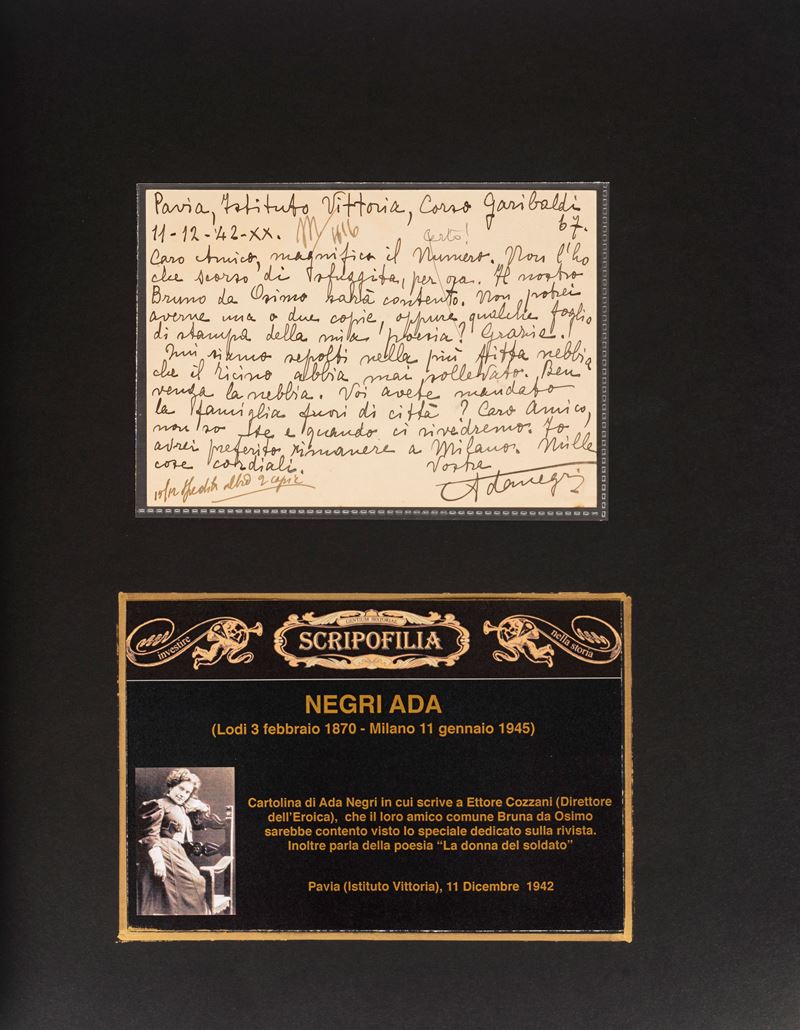 Pavia, Istituto Vittoria, Corso Garibaldi
67.
11-12-'42-XX.
Certo!
Caro Amico, magnifico il Numero. Non l'ho
che scorso di sfuggita, per ora. Il nostro
Bruno da Osimo sarà contento. Non potrei
averne una o due copie, oppure qualche foglio
di stampa della mia poesia? Grazie.
Qui siamo sepolti nella più fitta nebbia
che il Ticino abbia mai sollevato. Ben
venga la nebbia. Voi avete mandato
la famiglia fuori di città? Caro Amico,
non so se e quando ci rivedremo. Io
avrei preferito rimanere a Milano. Mille
cose cordiali. Vostra
Ada Negri
15/12 spedite altre 2 copie
investire
GENTIUM HISTORIAE
SCRIPOFILIA
nella storia
NEGRI ADA
(Lodi 3 febbraio 1870 - Milano 11 gennaio 1945)
Cartolina di Ada Negri in cui scrive a Ettore Cozzani (Direttore
dell'Eroica), che il loro amico comune Bruna da Osimo
sarebbe contento visto lo speciale dedicato sulla rivista.
Inoltre parla della poesia "La donna del soldato"
Pavia (Istituto Vittoria), 11 Dicembre 1942